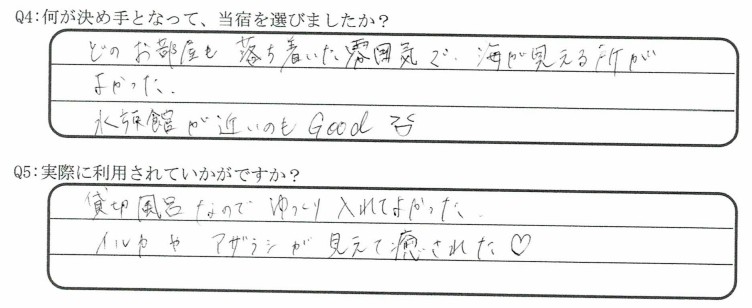 Q4:何が決め手となって、当宿を選びましたか？
どのお部屋も落ち着いた雰囲気で、海が見える所が
よかった。
水族館が近いのもGood
Q5:実際に利用されていかがですか？
貸切風呂なのでゆっくり入れてよかった。
イルカやアザラシが見えて癒された♡